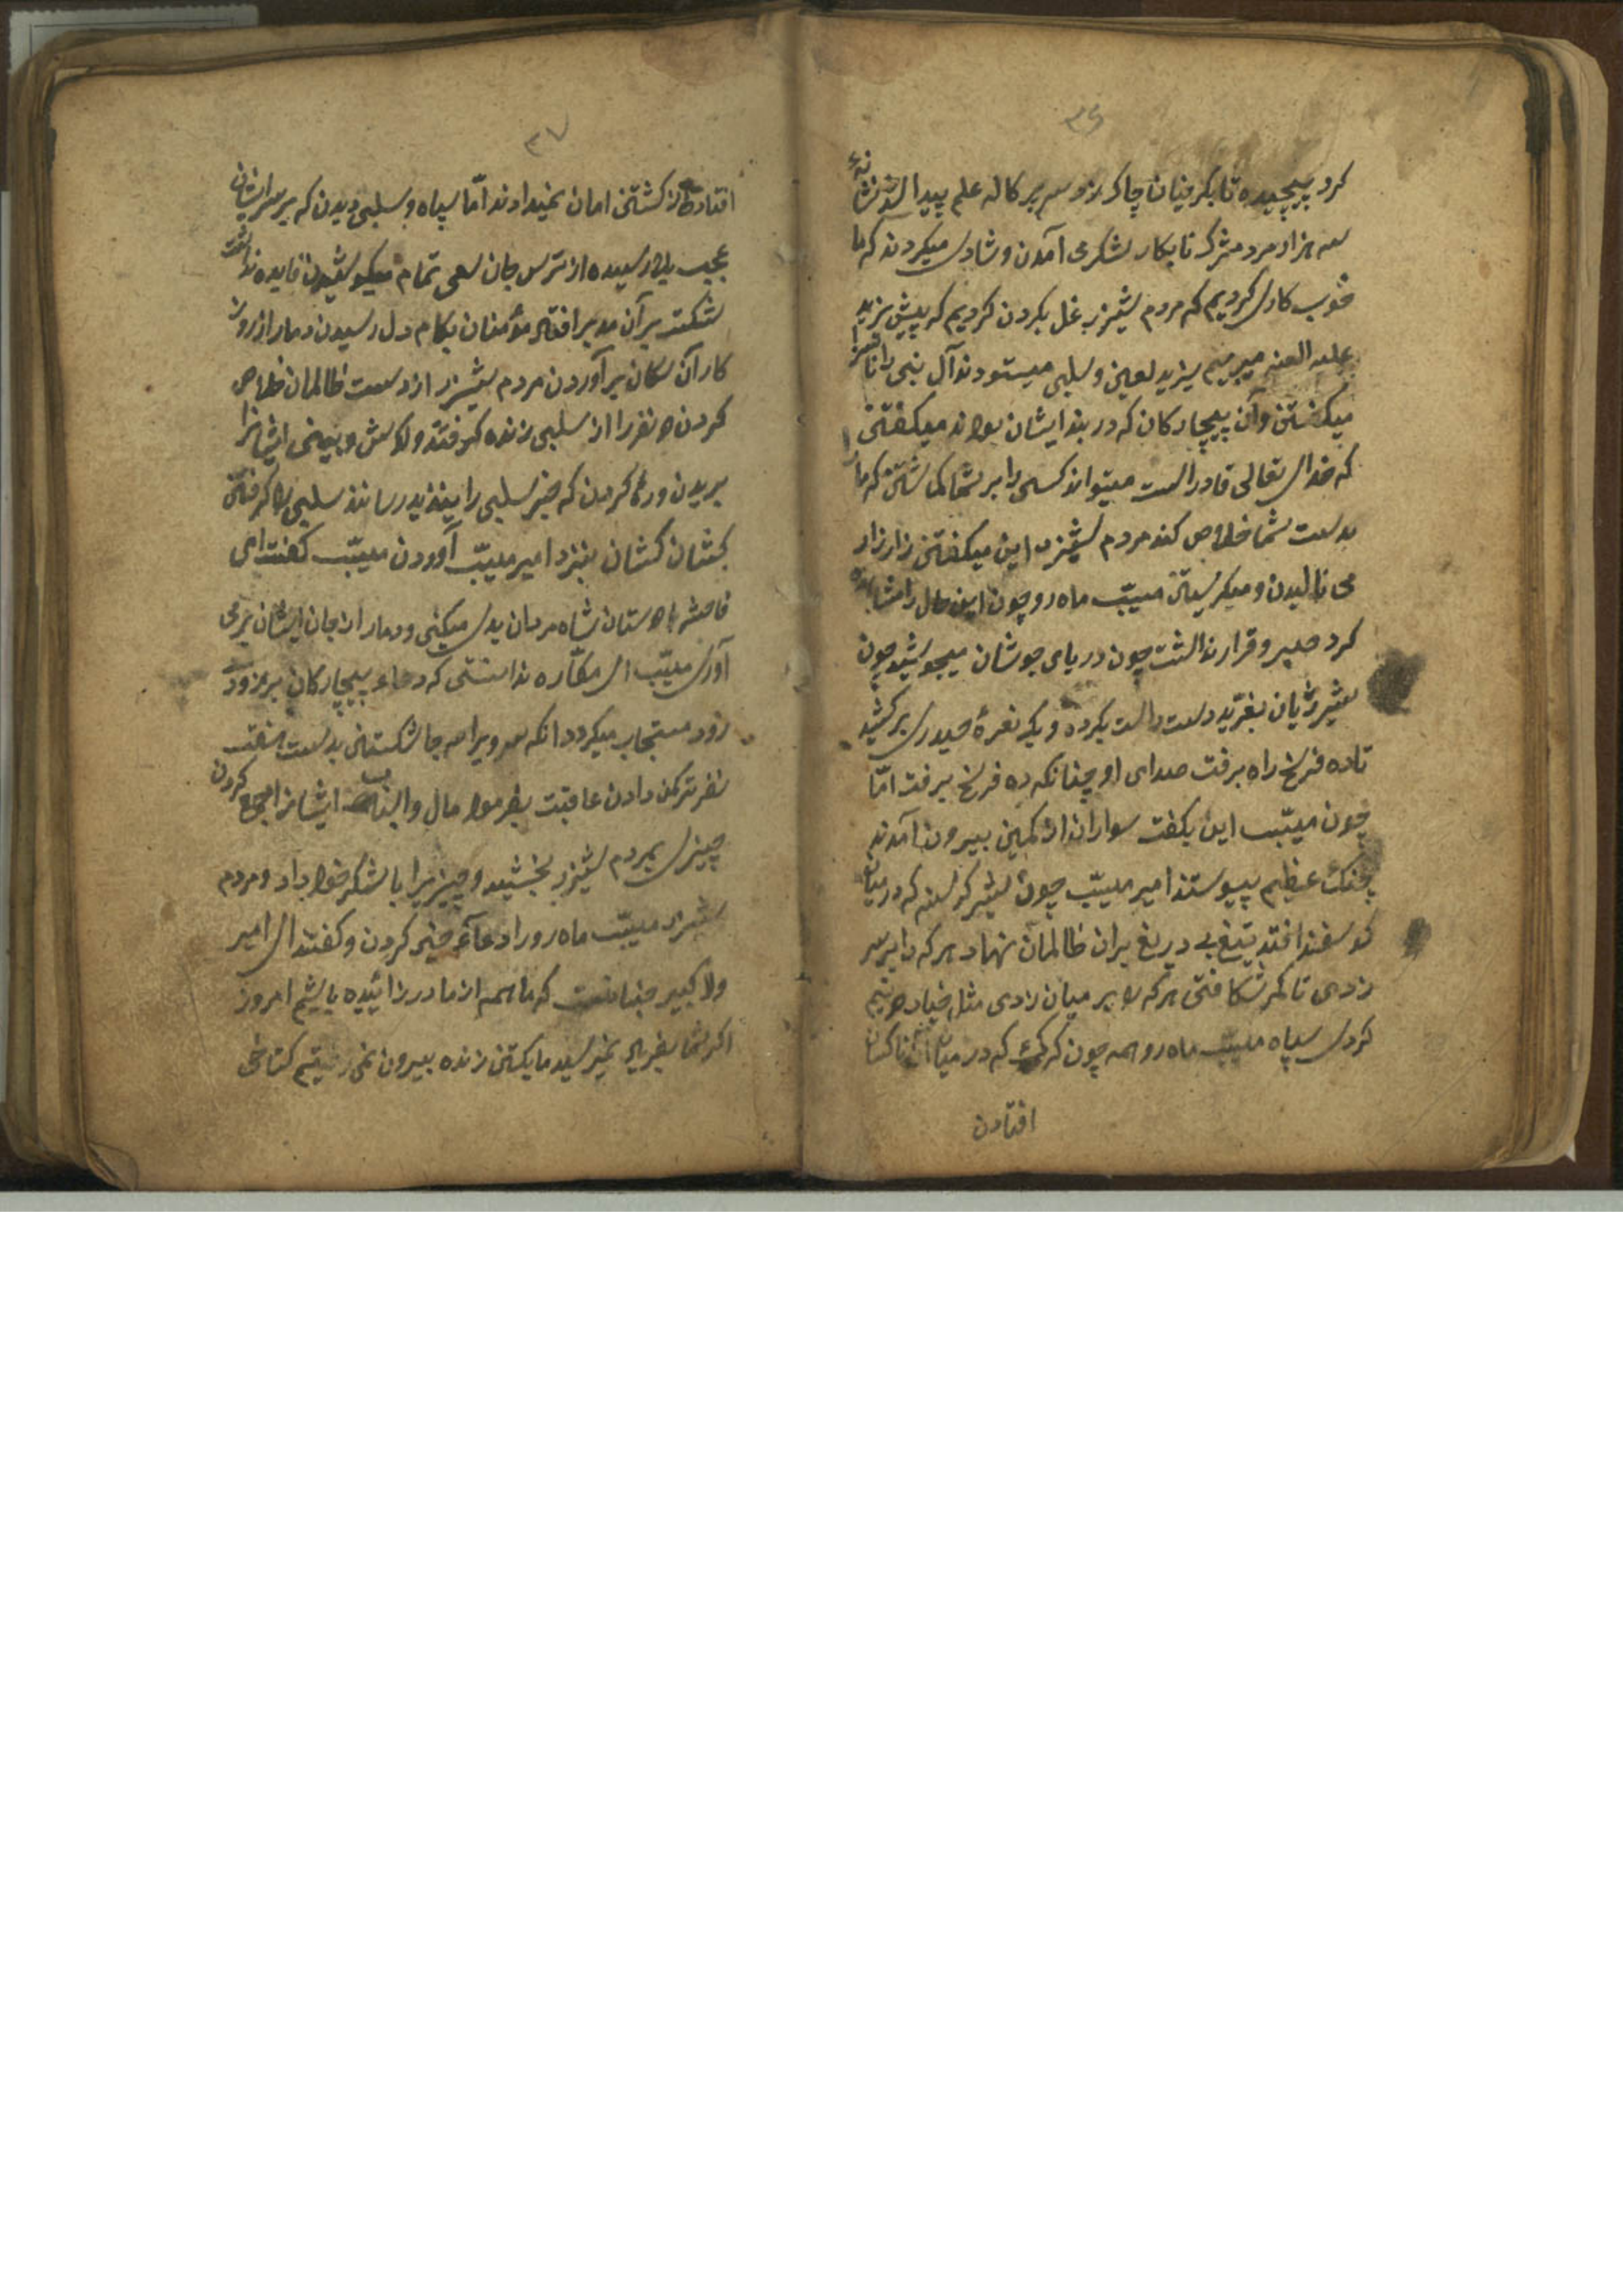 ۳۶
کرد پیچیده تا بکر فنیان چاک زد و سه پرکاله علم پیدا شد نشانهٔ
سه هزار مرد مشرک نابکار لشکر می آمدن و شادی میکردند که ما
خوب کاری کردیم که مردم شیزر بغل بکردن کردیم که پیش یزید
علیه العنه میبریم یزید لعین و سلبی میستودند آل نبی را ناسزا
میکفتن و آن بیچارکان که در بند ایشان بودند میکفتن
که خدای تعالی قادر است میتواند کسی را بر شما کماشتن که ما را
بدست شما خلاص کند مردم شیزر این میکفتن زار زار
می نالیدن و میکریستن مسیّب ماه رو چون این حال را مشاهده
کرد صبر و قرار نداشت چون دریای جوشان میجوشید چون
شیر ژیان بغرّید دست راست بکرده و یک نعرهٔ حیدری برکشید
تا ده فرسخ راه برفت صدای او چنانکه ده فرسخ برفت امّا
چون مسیّب این بکفت سواران از کمین بیرون آمدند
جنک عظیم پیوستند امیر مسیّب چون شیر کرسنه که در میان
کوسفند افتد تیغ بی دریغ بران ظالمان نهاد هر که را بر سر
زدی تا کمر شکافتی هر که را بر میان زدی مثل خیار دو نیم
کردی سپاه مسیّب ماه رو همه چون کرک که در میان ناکسان
افتادن
۳۷
افتاد از کشتن امان نمیدادند امّا سپاه سلبی دیدن که بر سر ایشان
عجب بلا رسیده از ترس جان سعی تمام میکوشیدن فایده نداشت
شکست بر آن مدبر افتاد مؤمنان بکام دل رسیدن دمار از روز
کار آن سکان برآوردن مردم شیزر از دست ظالمان خلاص
کردن دو نفر را از سلبی زنده کرفتند و کوش و بینی ایشانرا
بریدن و رها کردن که خبر سلبی را بیزید رسانند سلبی را کرفتن
کشان کشان بنزد امیر مسیّب آوردن مسیّب کفت ای
فاحشه با دوستان شاه مردان بدی میکنی و دمار از جان ایشان بر می
آوری مسیّب ای مکّاره ندانستی که دعاء بیچارکان بر زودی
زود مستجاب میکردد انکه سر ویرا همه جا شکستن بدست هفت
نفر ترکمن دادن عاقبت بفرمود مال و اسباب ایشانرا جمع کردن
چیزی بمردم شیزر بخشید و چیزیرا با لشکر خود داد و مردم
شیزر مسیّب ماه رو را دعاء خیر کردن و کفتند ای امیر
ولا کبیر چنانست که ما همه از مادر زائیده باشیم امروز
اکر شما بفریاد نمیرسید ما یکتن زنده بیرون نمی رفتیم کتاخی